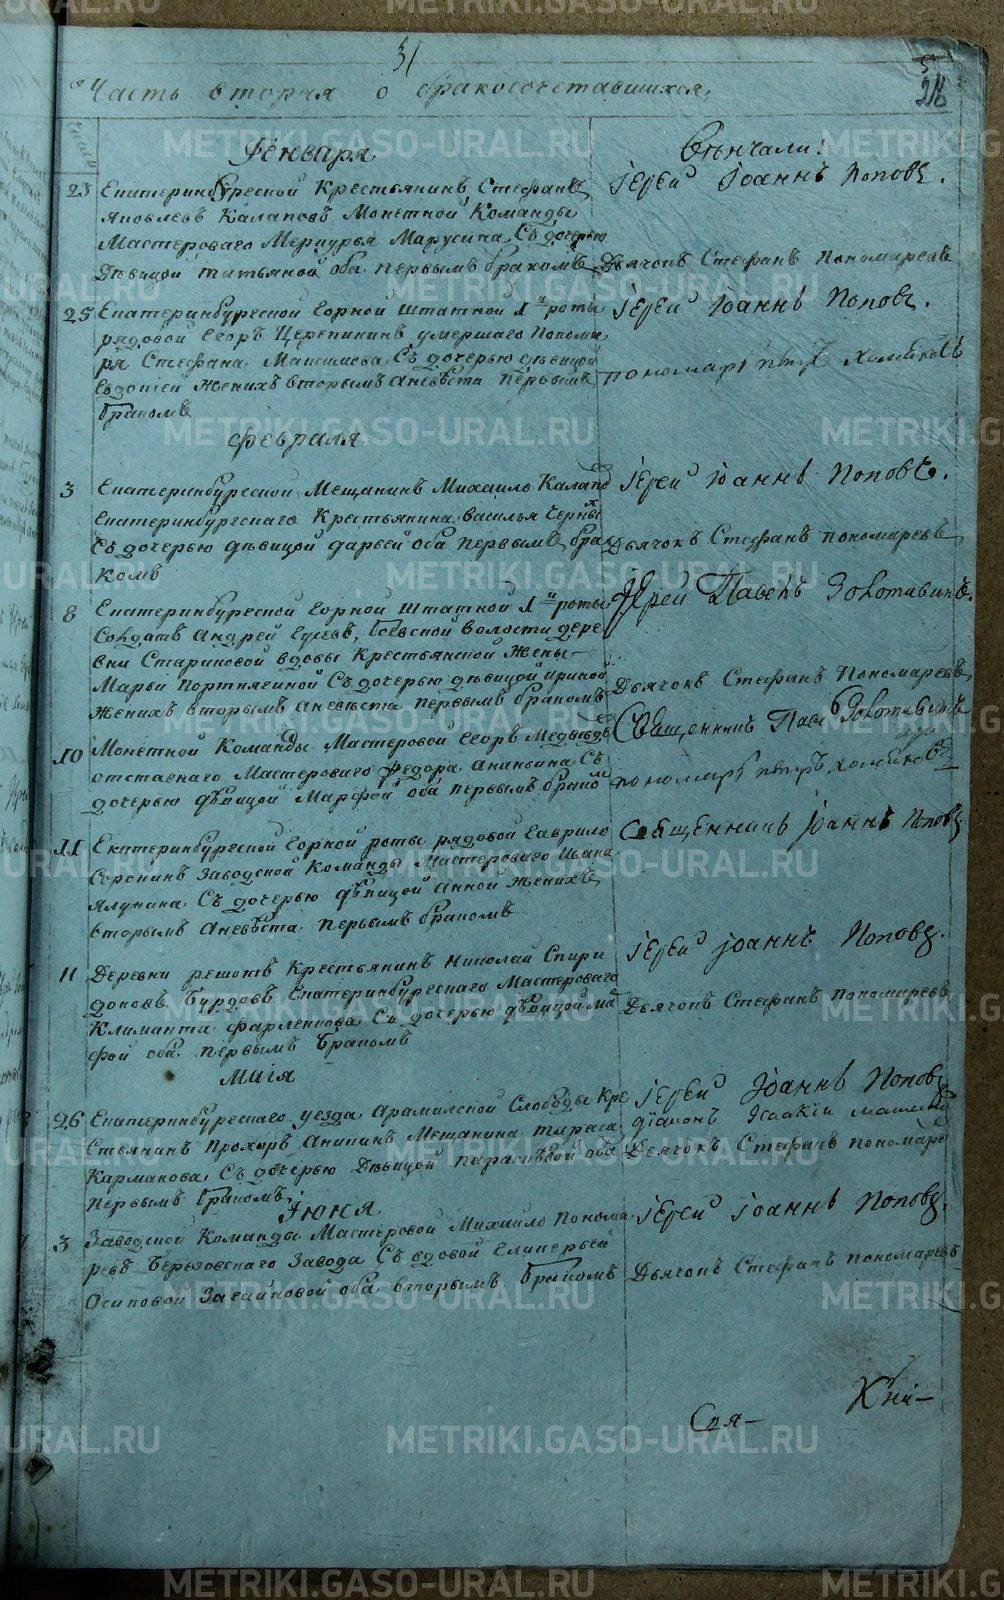 31
216
Часть вторая о бракосочетавшихся,
Числа
Генваря
Вѣнчали:
23 Екатеринбургской Крестьянинъ Стефанъ
Яковлевъ Калаповъ, Монетной Команды
Мастероваго Меркурья Марусина, Съ дочерью
Дѣвицой татьяной оба первымъ бракомъ
Іерей Іоаннъ Поповъ.
Дьячокъ Стефанъ Пономаревъ
25 Екатеринбургской Горной Штатной 1й роты
рядовой Егоръ Черепининъ умершаго Понома
ря Стефана Максимова Съ дочерью дѣвицой
Евдокіей Женихъ вторымъ Аневѣста Первымъ
бракомъ
Іерей Іоаннъ Поповъ.
пономарь петръ Хомяковъ
Февраля
3 Екатеринбургской Мещанинъ Михайло Калапо
Екатеринбургскаго Крестьянина Василья Черны
Съ дочерью дѣвицой дарьей Оба первымъ бра
комъ
Іерей Іоаннъ Поповъ.
Дьячокъ Стефанъ пономаревъ
8 Екатеринбургской Горной Штатной 1й роты
Солдатъ Андрей Гусевъ, боевской волости дере
вни Стариковой вдовы Крестьянской Жены
Марьи Портнягиной Съ дочерью дѣвицой ириной
Женихъ вторымъ Аневѣста первымъ бракомъ
Іерей Павелъ Золотавинъ.
Дьячокъ Стефанъ Пономаревъ
10 Монетной Команды Мастеровой Егоръ Медвѣдевъ
отставнаго Мастероваго Федора Ананьина Съ
дочерью дѣвицой Марфой оба первымъ бракомъ
Священникъ Павелъ Золотавинъ
пономарь петръ хомяковъ
11 Екатеринбургской Горной роты рядовой Гаврило
Сорокинъ Заводской Команды Мастероваго Ивана
Ялунина Съ дочерью дѣвицой Анной Женихъ
вторымъ Аневѣста первымъ бракомъ
Священникъ Іоаннъ Поповъ
11 Деревни решотъ Крестьянинъ Николай Спири
доновъ Бурдовъ Екатеринбургскаго Мастероваго
Климанта Фарленкова Съ дочерью дѣвицой ма
фой оба первымъ бракомъ
Іерей Іоаннъ Поповъ.
Дьячокъ Стефанъ пономаревъ
Маія
26 Екатеринбургскаго уезда Арамильской Слободы Кре
Стьянинъ Прохоръ Аникинъ Мещанина тараса
Карманова Съ дочерью Дѣвицой параскѣвой оба
первымъ бракомъ
Іерей Іоаннъ Поповъ
діаконъ Исаакій
Дьячокъ Стефанъ пономаре
Іюня
3 Заводской Команды Мастеровой Михайло Понома
ревъ Березовскаго Завода Съ вдовой Гликерьей
Осиповой Загайновой оба вторымъ бракомъ
Іерей Іоаннъ Поповъ.
Дьячокъ Стефанъ пономаревъ